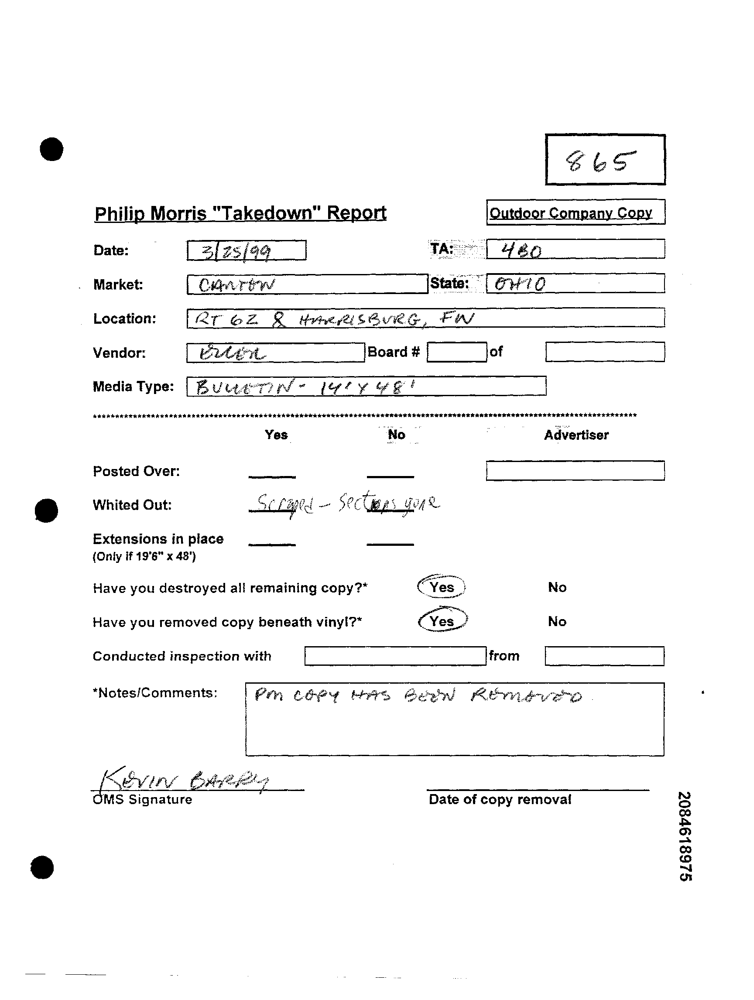 865
Philip Morris "Takedown" Report
Outdoor Company Copy
Date: 3/25/99 TA: 480
Market: CANTON State: OHIO
Location: RT 62 & HARRISBURG, FW
Vendor: Board # of
Media Type: BULLETIN - 14' X 48'
Yes No Advertiser
Posted Over:
Whited Out: Scraped - Sections gone
Extensions in place
(Only if 19'6" x 48')
Have you destroyed all remaining copy?* Yes No
Have you removed copy beneath vinyl?* Yes No
Conducted inspection with from
*Notes/Comments: PM COPY HAS BEEN REMOVED
KEVIN BARRY
OMS Signature Date of copy removal
2084618975